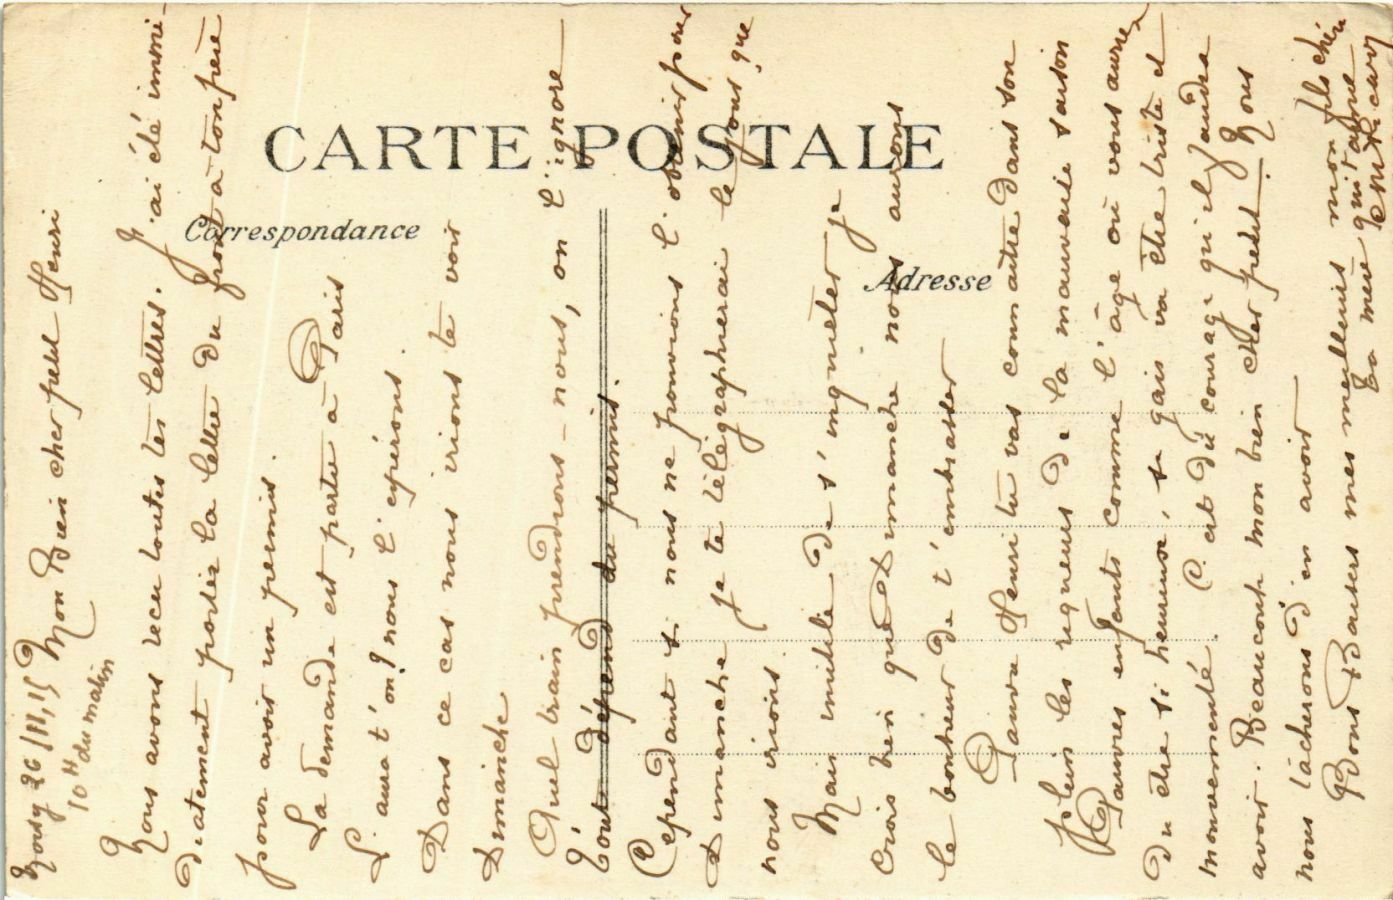 CARTE POSTALE
Correspondance
Adresse
Noisy 26/III/15 Mon Bien cher petit Henri
10 H du matin
Nous avons reçu toutes tes lettres. J'ai été immé-
diatement porter la lettre du front à ton père
pour avoir un permis.
La demande est partie à Paris
L'aura t'on? nous l'espérons.
Dans ce cas nous irions te voir
Dimanche
Quel train prendrons-nous, on l'ignore
Tout dépend du permis.
Cependant si nous ne pouvions l'obtenir pour
Dimanche je te télégraphierai le jour que
nous irions
Mais inutile de s'inquiéter je
crois bien que Dimanche nous aurons
le bonheur de t'embrasser
Pauvre Henri tu vas connaître dans son
plein les rigueurs de la mauvaise saison
Pauvres enfants comme l'âge où vous auriez
du être si heureux, si gais va être triste et
mouvementé. C'est du courage qu'il faudra
avoir. Beaucoup mon bien cher petit Nous
nous tâcherons d'en avoir
Bons Baisers mes meilleurs mon fils chéri
Ta mère qui t'aime